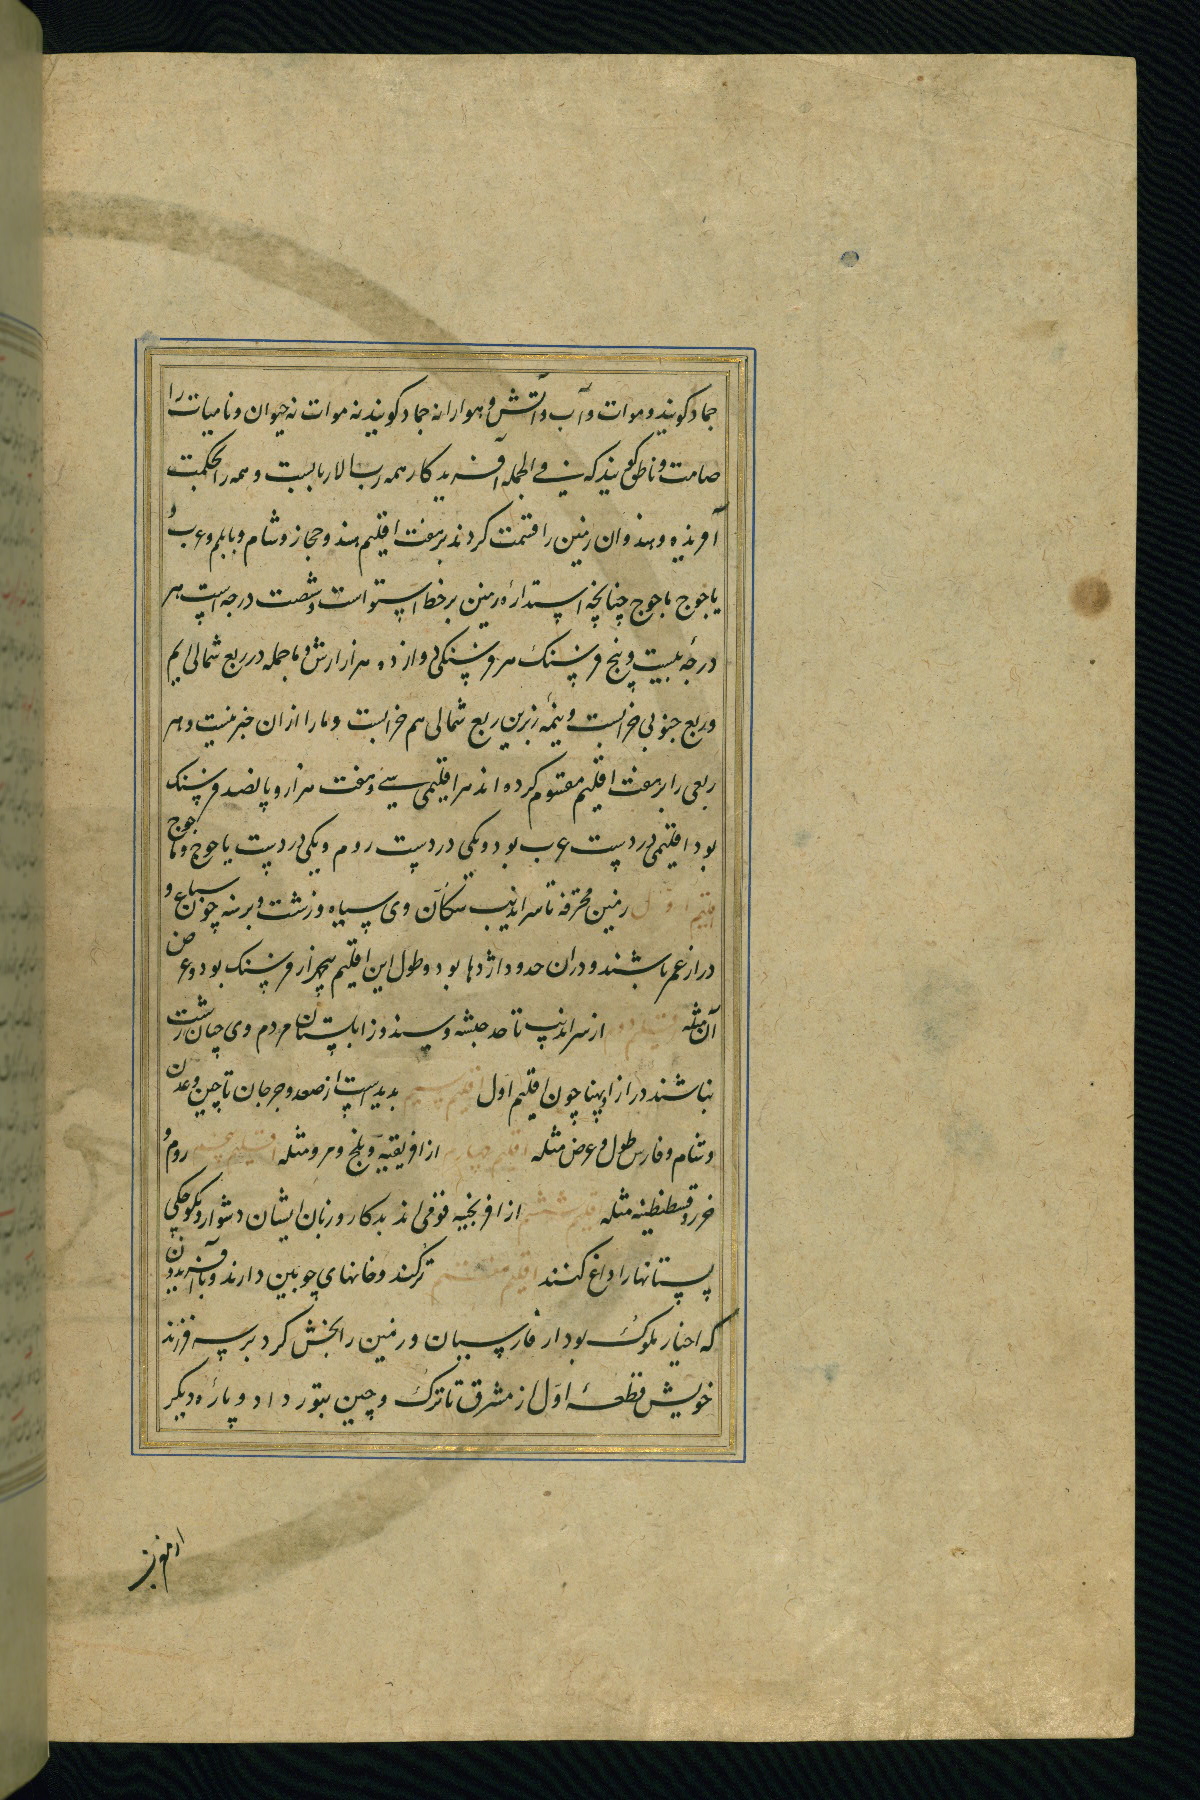 جماد کویند و موات و آب و آتش و هوا را نه جماد کویند نه موات نه حیوان و نامیات را
صامت و ناطق کویند که نی فی الجمله آفریدکار همه رب الاربابست و همه را بحکمت
آفریده و هندوان زمین را قسمت کردند بر هفت اقلیم هند و حجاز و شام و بابل و عرب و
یاجوج ماجوج چنانچه استدارهٔ زمین بر خط استوا است و شصت درجه است هر
درجهٔ بیست و پنج فرسنک هر فرسنکی دوازده هزار ارش و ما جمله در ربع شمالی ایم
و ربع جنوبی خرابست و نیمهٔ زبرین ربع شمالی هم خرابست و ما را از ان خبر نیست و هر
ربعی را بر هفت اقلیم مقسوم کرده اند هر اقلیمی سی و هفت هزار و پانصد فرسنک
بود اقلیمی در دست عرب بود و یکی در دست روم و یکی در دست یاجوج و ماجوج
اقلیم اول زمین محترقه تا سراندیب سکان وی سیاه و زشت و برهنه چون سباع و
دراز عمر باشند و در ان حدود اژدها بود و طول این اقلیم هزار فرسنک بود و عرض
آن مثله اقلیم دوم از سراندیب تا حد حبشه و سند و زابلستان مردم وی چنان زشت
نباشند درازا و پهنا چون اقلیم اول اقلیم سیم بدید است از صعد و جرجان تا چین و عدن
و شام و فارس طول و عرض مثله اقلیم چهارم از افریقیه و بلخ و مرو مثله اقلیم پنجم روم و
خزر و قسطنطنیه مثله اقلیم ششم از افرنجیه قومی اند بدکار و زبان ایشان دشوار و بکوچکی
پستانها را داغ کنند اقلیم هفتم ترکند و خانهای چوبین دارند و با آفریدون
که اخیار ملوک بود از فارسیان و زمین را بخش کرد بر سه فرزند
خویش قطعهٔ اول از مشرق تا ترک و چین بتور داد و پارهٔ دیکر